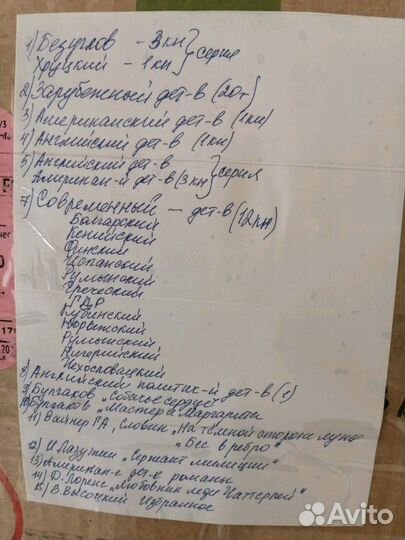 1) Безуглов - 3кн
Хруцкий - 1кн } серия
2) Зарубежный дет-в (20т)
3) Американский дет-в (1кн)
4) Английский дет-в (1кн)
5) Английский дет-в
Американ-й дет-в (3кн) } серия
7) Современный - дет-в (12кн)
Болгарский
Кенийский
Финский
Испанский
Румынский
Греческий
ГДР
Кубинский
Норвежский
Румынский
Нигерийский
Чехословацкий
8) Английский политич-й дет-в (1)
9) Булгаков „Собачье сердце"
10) Булгаков „Мастер и Маргарита"
11) Вайнер ГА, Словин „На тёмной стороне луны"
„Бес в ребро"
12) И. Лазутин „Сержант милиции"
13) Американ-е дет-е романы
14) Д. Лоренс „Любовник леди Чаттерлей"
15) В. Высоцкий Избранное
Avito